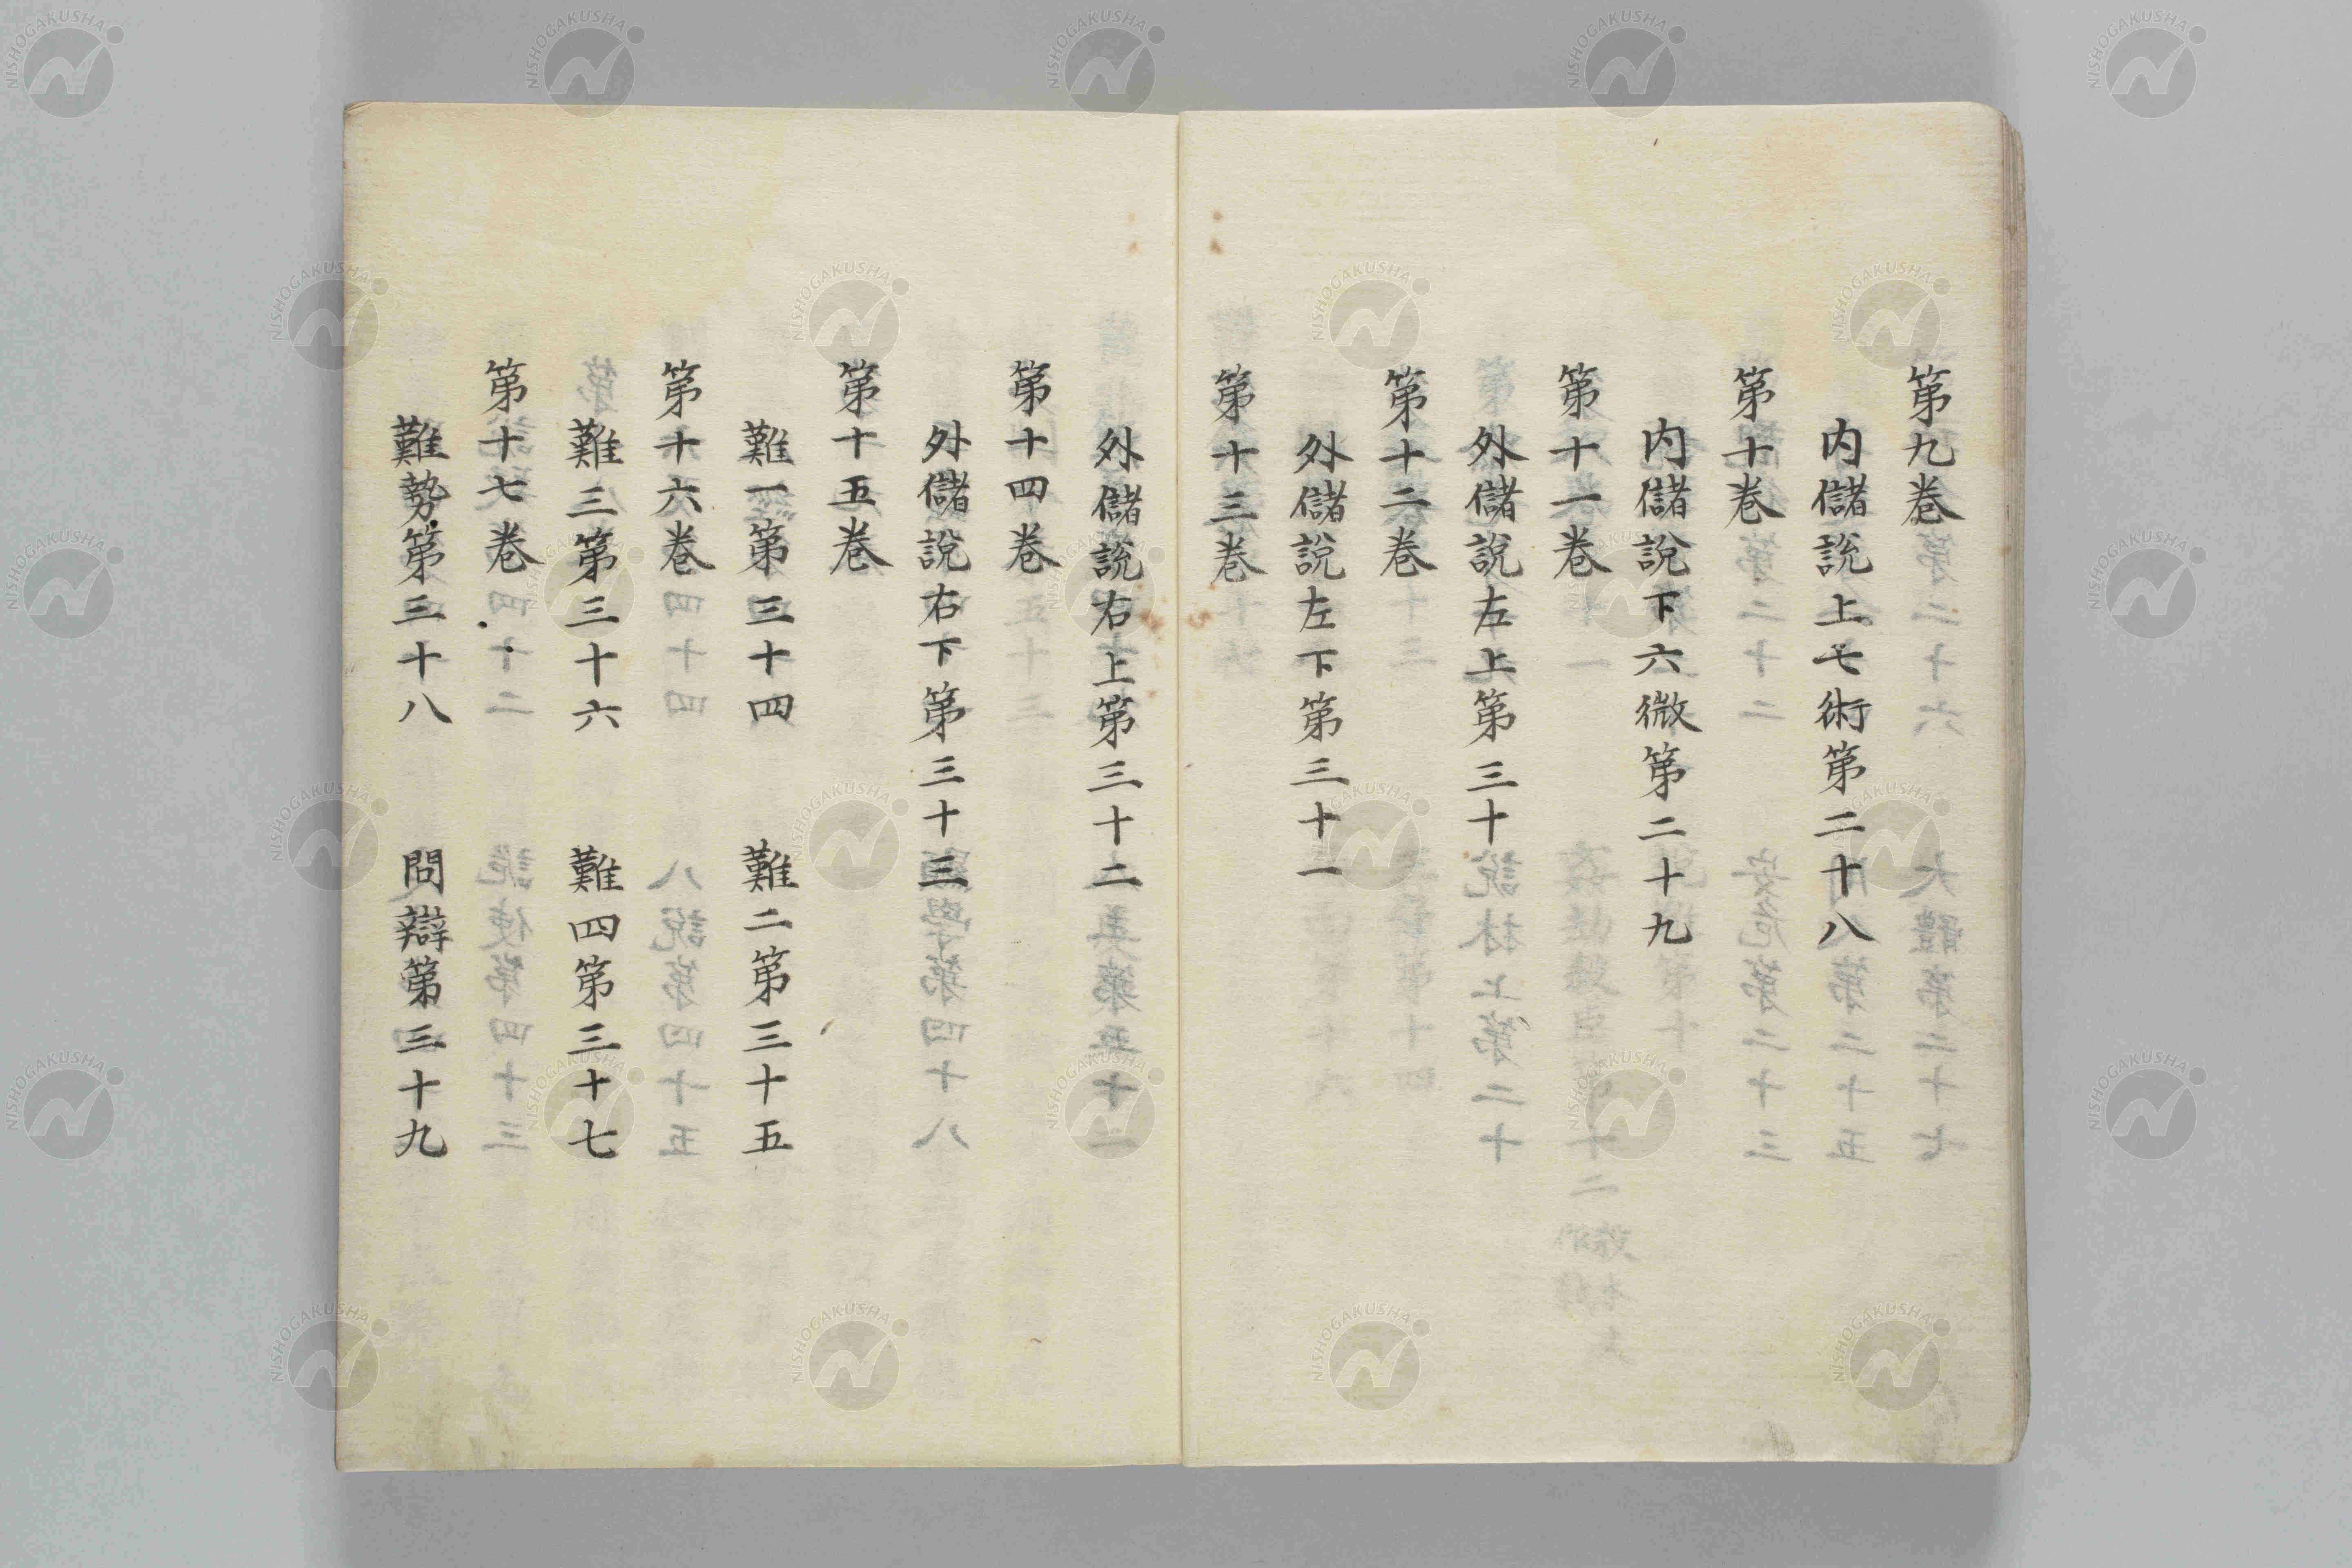 第九卷
内儲說上七術第二十八
第十卷
内儲說下六微第二十九
第十一卷
外儲說左上第三十
第十二卷
外儲說左下第三十一
第十三卷
外儲說右上第三十二
第十四卷
外儲說右下第三十三
第十五卷
難一第三十四　難二第三十五
第十六卷
難三第三十六　難四第三十七
第十七卷
難勢第三十八　問辯第三十九
NISHOGAKUSHA